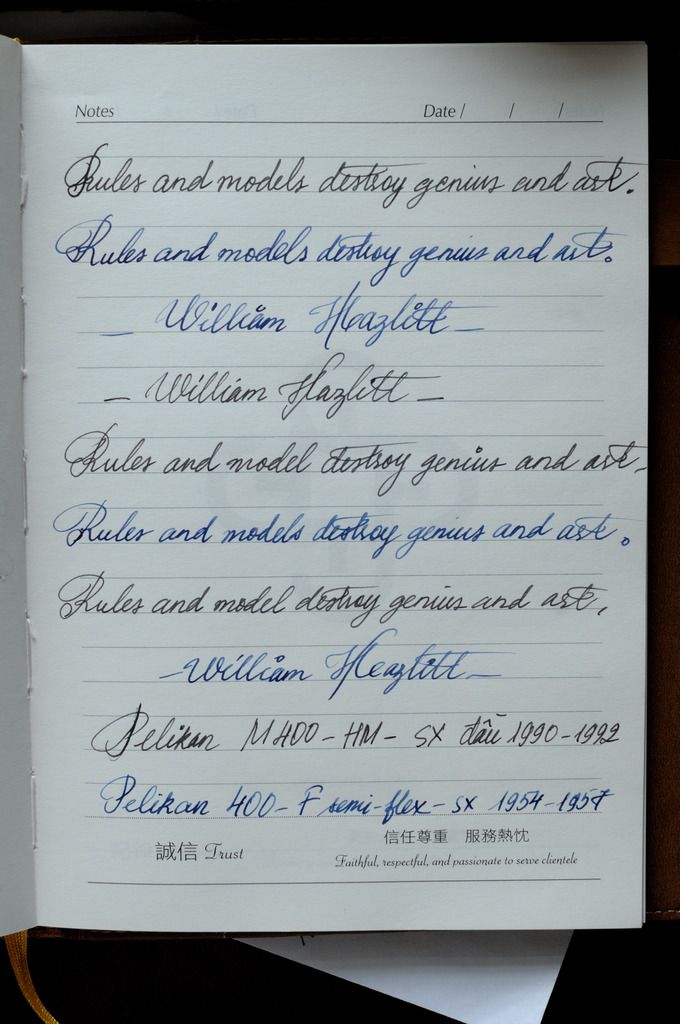 Notes Date / / /
Rules and models destroy genius and art.
Rules and models destroy genius and art.
— William Hazlitt —
— William Hazlitt —
Rules and model destroy genius and art.
Rules and models destroy genius and art.
Rules and model destroy genius and art,
— William Heazlitt —
Pelikan M400 - HM - SX đầu 1990-1992
Pelikan 400 - F semi-flex - SX 1954-1957
誠信 Trust
信任尊重 服務熱忱
Faithful, respectful, and passionate to serve clientele